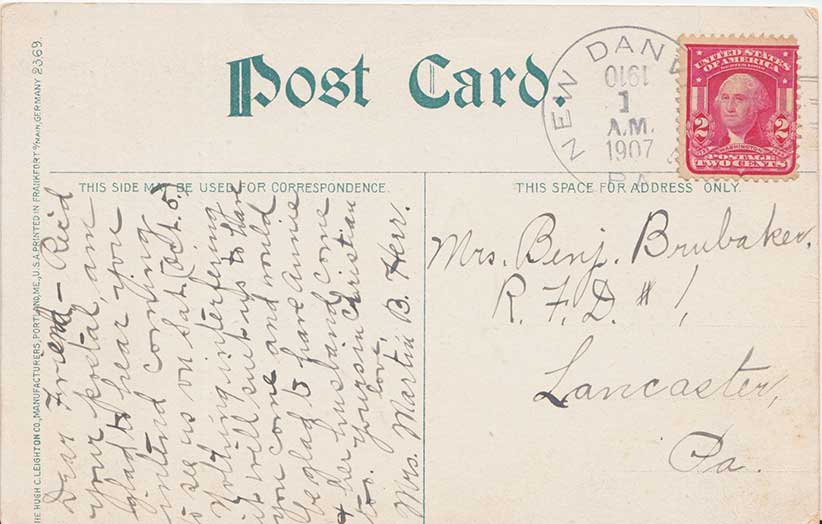 Post Card.
NEW DAN
1
A.M.
1907
PA
UNITED STATES
OF AMERICA
2
2
WASHINGTON
POSTAGE
TWO CENTS
THIS SIDE MAY BE USED FOR CORRESPONDENCE.
THIS SPACE FOR ADDRESS ONLY.
Mrs. Benj. Brubaker,
R. F. D. # 1,
Lancaster,
Pa.
Dear Friend - Rec'd
your postal, am
glad to hear you
intend coming
to see us on Sat. Oct. 5,
Nothing interfering
it will suit us to have
you come and would
be glad to have Annie
& her husband come
too. Yours in Christian
love,
Mrs. Martin B. Herr.
HE HUGH C. LEIGHTON CO., MANUFACTURERS, PORTLAND, ME., U.S.A. PRINTED IN FRANKFORT o/MAIN, GERMANY 2369.